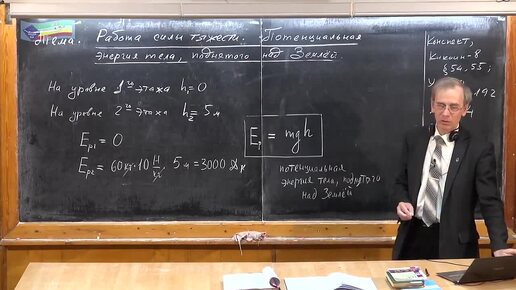 Тема. Работа силы тяжести. Потенциальная
энергия тела, поднятого над Землёй
На уровне 1го этажа h₁=0
На уровне 2го этажа h₂= 5м
Eₚ₁ = 0
Eₚ₂ = 60кг·10 Н/кг · 5м = 3000 Дж
Eₚ = mgh
потенциальная
энергия тела, поднятого
над Землёй
Конспект,
Кикоин-8
§54,55;
У
192